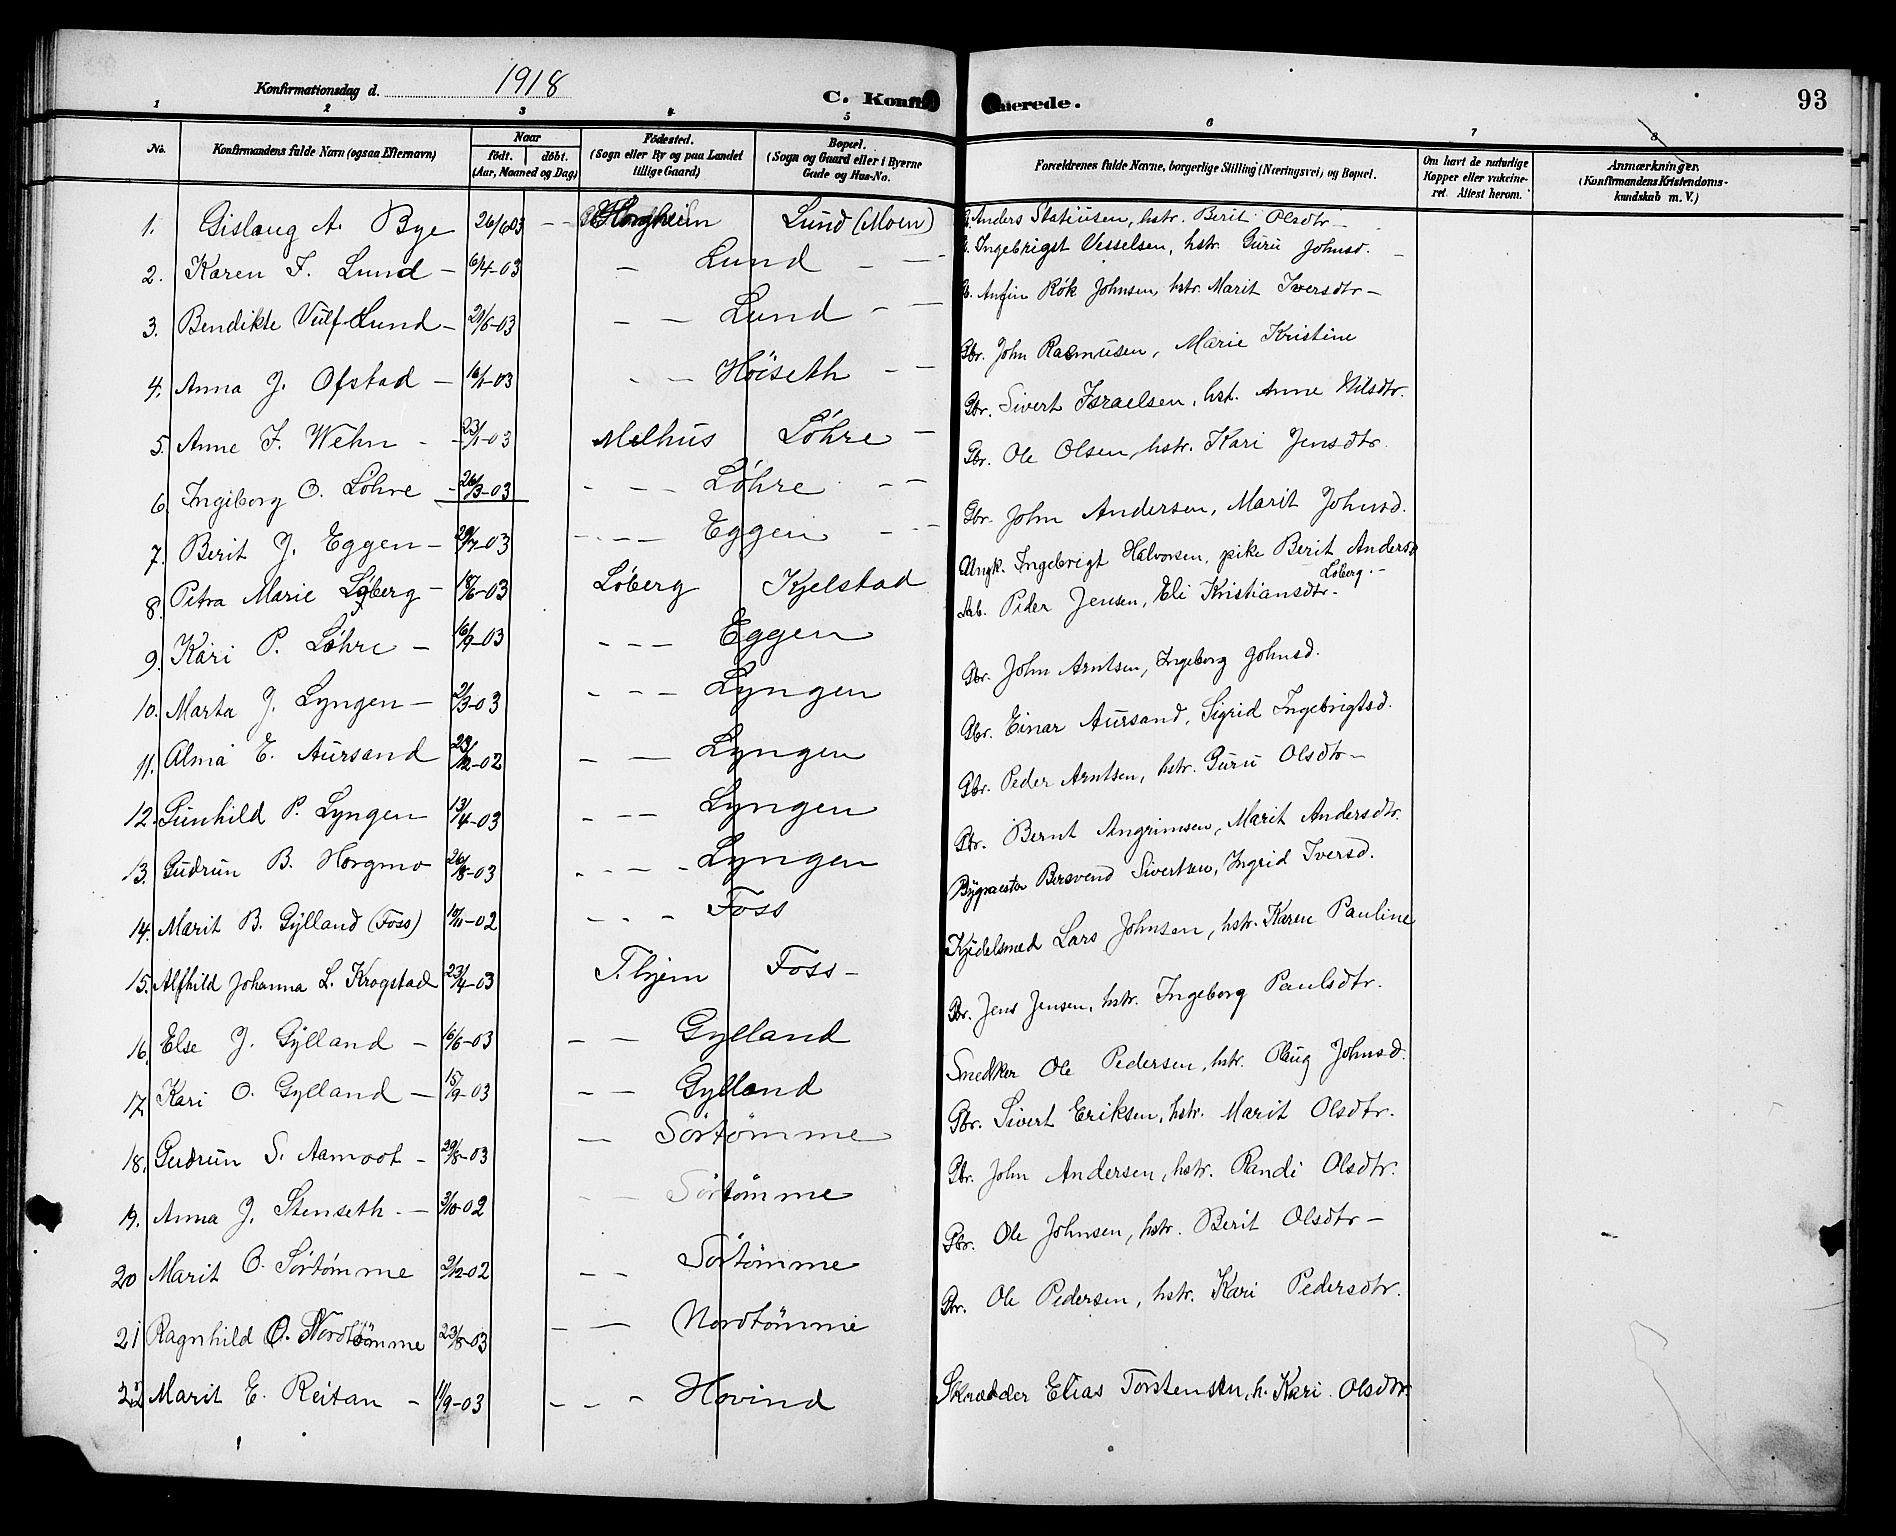 Konfirmationsdag d. 1918
C. Konfirmerede. 93
1 2 3 4 5 6 7 8
No. Konfirmandens fulde Navn (ogsaa Efternavn) Naar født. døbt. (Aar, Maaned og Dag) Fødested. (Sogn eller By og paa Landet tillige Gaard) Bopæl. (Sogn og Gaard eller i Byerne Gade og Hus-No. Forældrenes fulde Navne, borgerlige Stilling (Næringsvei) og Bopæl. Om havt de naturlige Kopper eller vakcineret. Attest herom. Anmærkninger. (Konfirmandens Kristendomskundskab m. V.)
1. Gislaug A. Bye 26/6 03 - - Lund (Moen) Anders Statiusen, hstr. Berit Olsdtr -
2. Karen I. Lund - 6/4-03 - Lund - - Ingebrigt Vesselsen, hstr. Guru Johnsd. -
3. Bendikte Vulf Lund - 21/5-03 - - Lund - - Anfin Røk Johnsen, hstr. Marit Iversdtr -
4. Anna J. Ofstad - 16/1-03 - - Höiseth - - Gbr. John Rasmusen, Marie Kristine
5. Anne I. Wehn - 23/1-03 Melhus Löhre - Gbr. Sivert Israelsen, hst. Anne Nilsdtr.
6. Ingeborg O. Löhre - 26/3-03 - - - Löhre - - Gbr. Ole Olsen, hstr. Kari Jensdtr.
7. Berit J. Eggen - 29/7-03 - - - - Eggen - - Gbr. John Andersen, Marit Johnsd.
8. Petra Marie Løberg - 18/6-03 Løberg Kjelstad Ungk. Ingebrigt Halvorsen, pike Berit Andersd Løberg. -
9. Kari P. Løhre - 16/9-03 - - - Eggen Arb. Peder Jensen, Eli Kristiansdtr -
10. Marta J. Lyngen - 2/3-03 - - - Lyngen Gbr. John Arntsen, Ingeborg Johnsd.
11. Alma E. Aursand 23/12-02 - - Lyngen Gbr. Einar Aursand, Sigrid Ingebrigtsd.
12. Gunhild P. Lyngen 13/4-03 - - - Lyngen Gbr. Peder Arntsen, hstr. Guru Olsdtr -
13. Gudrun B. Horgmo 26/8-03 - - - - Lyngen Gbr. Bernt Angrimsen, Marit Andersdtr.
14. Marit B. Gylland (Foss) 10/11-02 - - - Foss Bersvend Sivertsen, Ingrid Iversd.
15. Alfhild Johanna L. Krogstad 23/4-03 T.hjem Foss - Kjedelsmed Lars Johnsen, hstr. Karen Pauline
16. Else J. Gylland - 16/6-03 - - Gylland Gbr. Jens Jensen, hstr. Ingeborg Paulsdtr.
17. Kari O. Gylland - 15/9-03 - - Gylland Snedker Ole Pedersen, hstr. Olaug Johnsd.
18. Gudrun S. Aamoot - 29/8-03 - Sörtömme Gbr. Sivert Eriksen, hstr. Marit Olsdtr.
19. Anna J. Stenseth. - 3/10-02 - - Sörtömme Gbr. John Andersen, hstr. Randi Olsdtr.
20 Marit O. Sørtømme 9/12-02 - - Sörtömme Gbr. Ole Johnsen, hstr. Berit Olsdtr -
21 Ragnhild O. Nordtömme 23/8-03 - - Nordtömme Gbr. Ole Pedersen, hstr. Kari Pedersdtr.
22 Marit E. Reitan - 11/9-03 - - - Hovind Skrædder Elias Torstensen, h. Kari Olsdtr